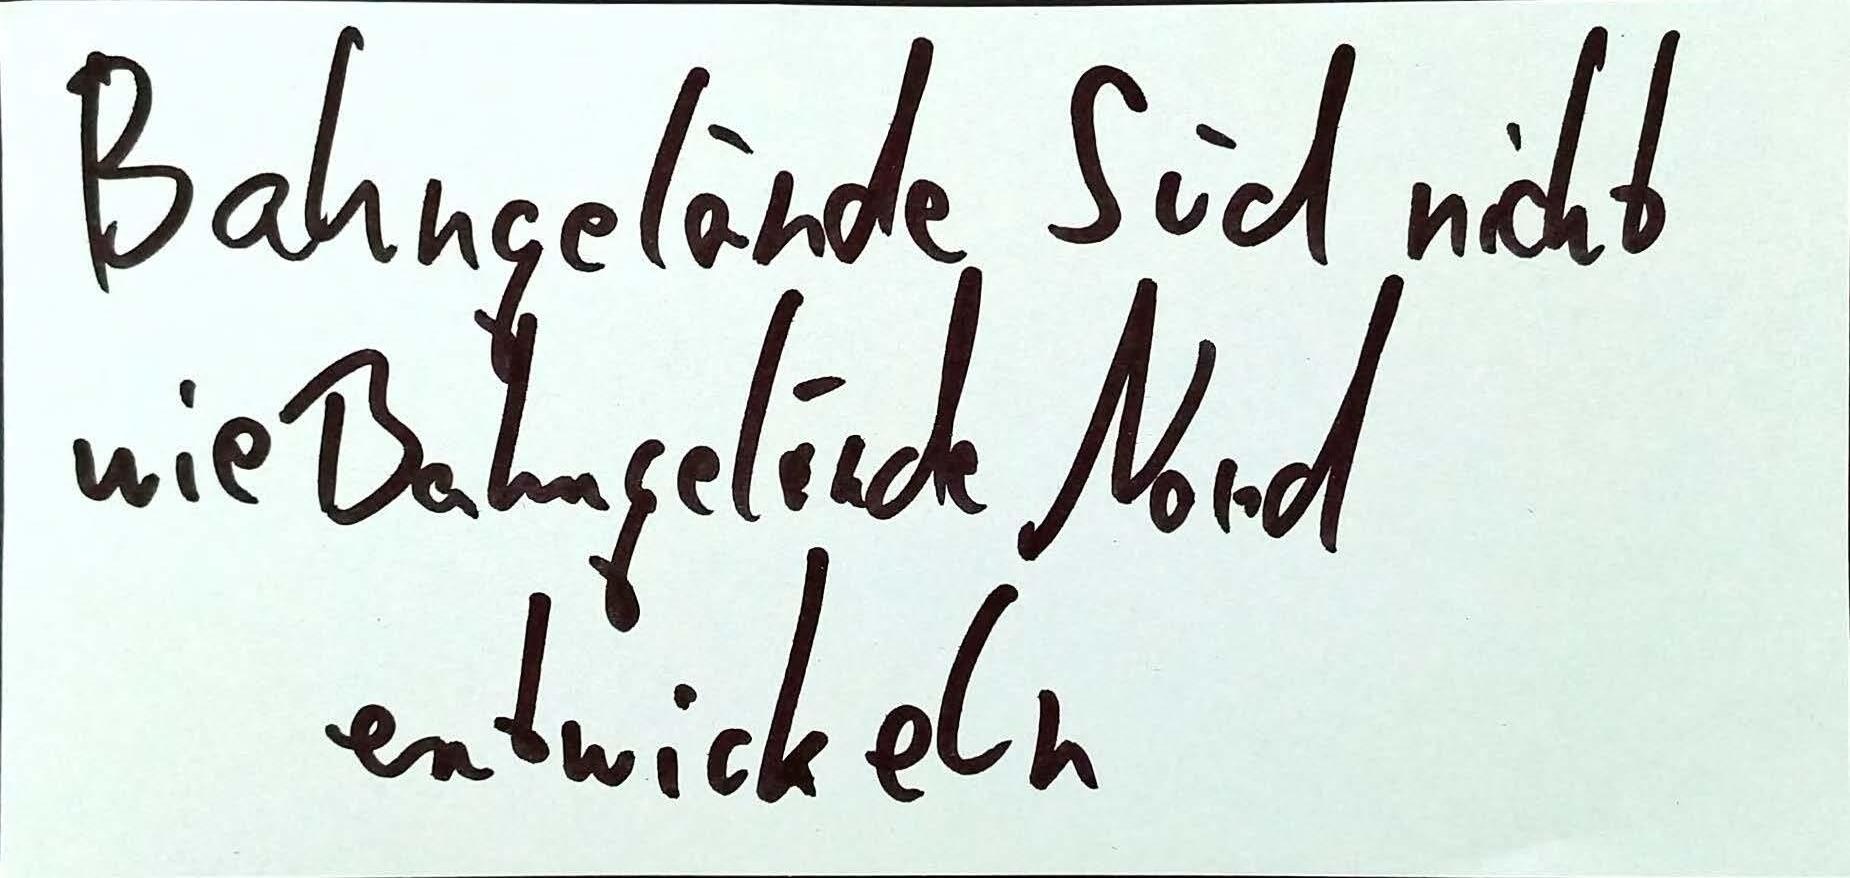 Bahngelände Süd nicht
wie Bahngelände Nord
entwickeln